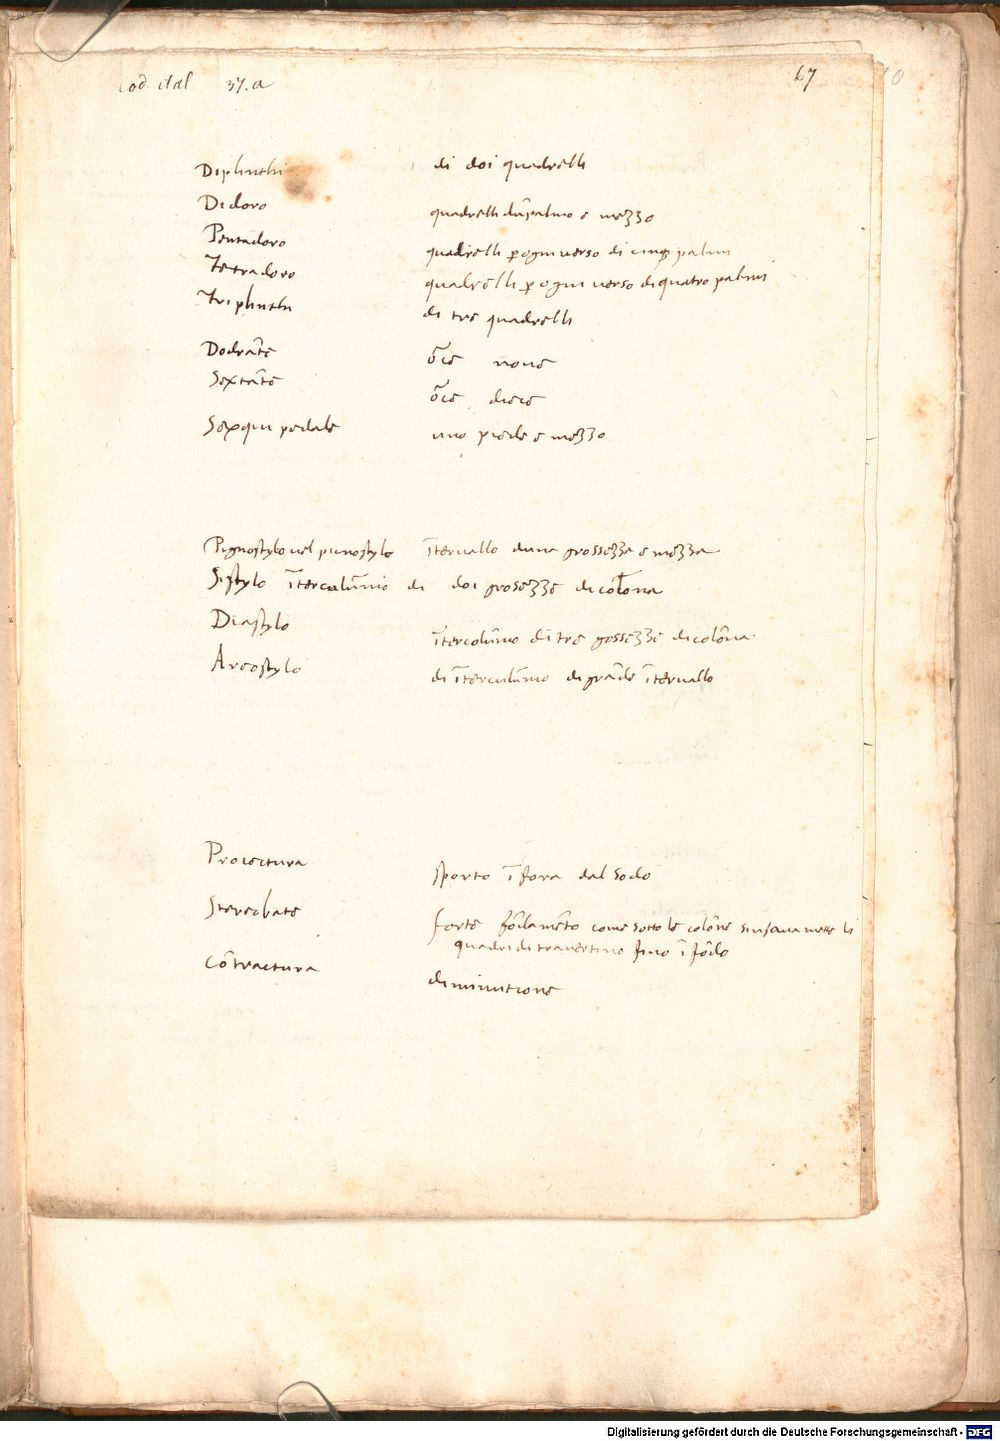 Cod ital 37.a 67
Diplinthi di doi quadrelli
Didoro quadrelli dūpalmo e mezzo
Pentadoro quadrelli ꝑ ogni verso di cinqꝫ palmi
Tetradoro quadrelli ꝑ ogni verso di quatro palmi
Triplinthi di tre quadrelli
Dodrāte ōcie nove
Sextāte ōcie diece
Sexqui pedale uno piede e mezzo
Pignostylo vel picnostylo ītervallo duna grossezza e mezza
Sistylo ītercolūnio di doi grosezze di colonna
Diastylo ītercolūnio di tre gossezze di colōna
Areostylo di ītercolūnio di grāde ītervallo
Proiectura sporto ī fora dal sodo
Stereobate forte fōdamēto come sotto le colōne
quadri di travertino fino ī fōdo
Cōtractura diminutione
Digitalisierung gefördert durch die Deutsche Forschungsgemeinschaft - DFG